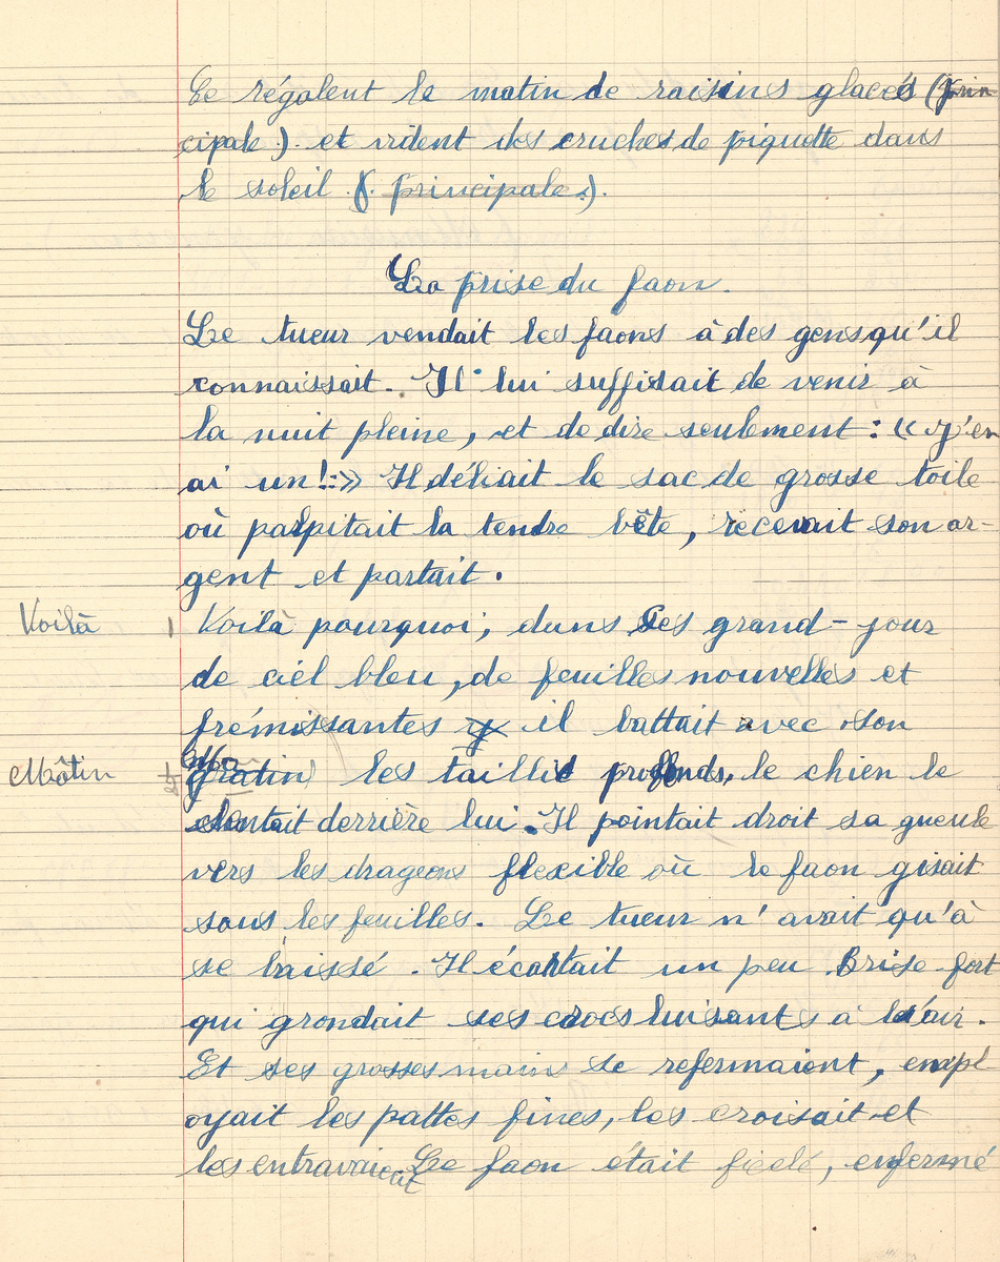 Se régalent le matin de raisins glacés (prin
cipale). et vident des cruches de piquette dans
le soleil (. principale).
La prise du faon.
Le tueur vendait les faons à des gens qu'il
connaissait. Il lui suffisait de venir à
la nuit pleine, et de dire seulement : « J'en
ai un ! » Il déliait le sac de grosse toile
où palpitait la tendre bête, recevait son ar-
gent et partait.
Voilà 1 Voilà pourquoi, dans ses grand-jour
de ciel bleu, de feuilles nouvelles et
frémissantes il battait avec son
Mâtin les taillis profonds, le chien le
derrière lui. Il pointait droit sa gueule
vers les drageons flexible où le faon gisait
sous les feuilles. Le tueur n'avait qu'à
se baissé. Il écartait un peu Brise-fort
qui grondait ses crocs luisants à l'air.
Et ses grosses mains se refermaient, empl
oyait les pattes fines, les croisait et
les entravaient Le faon était ficelé, enfermé